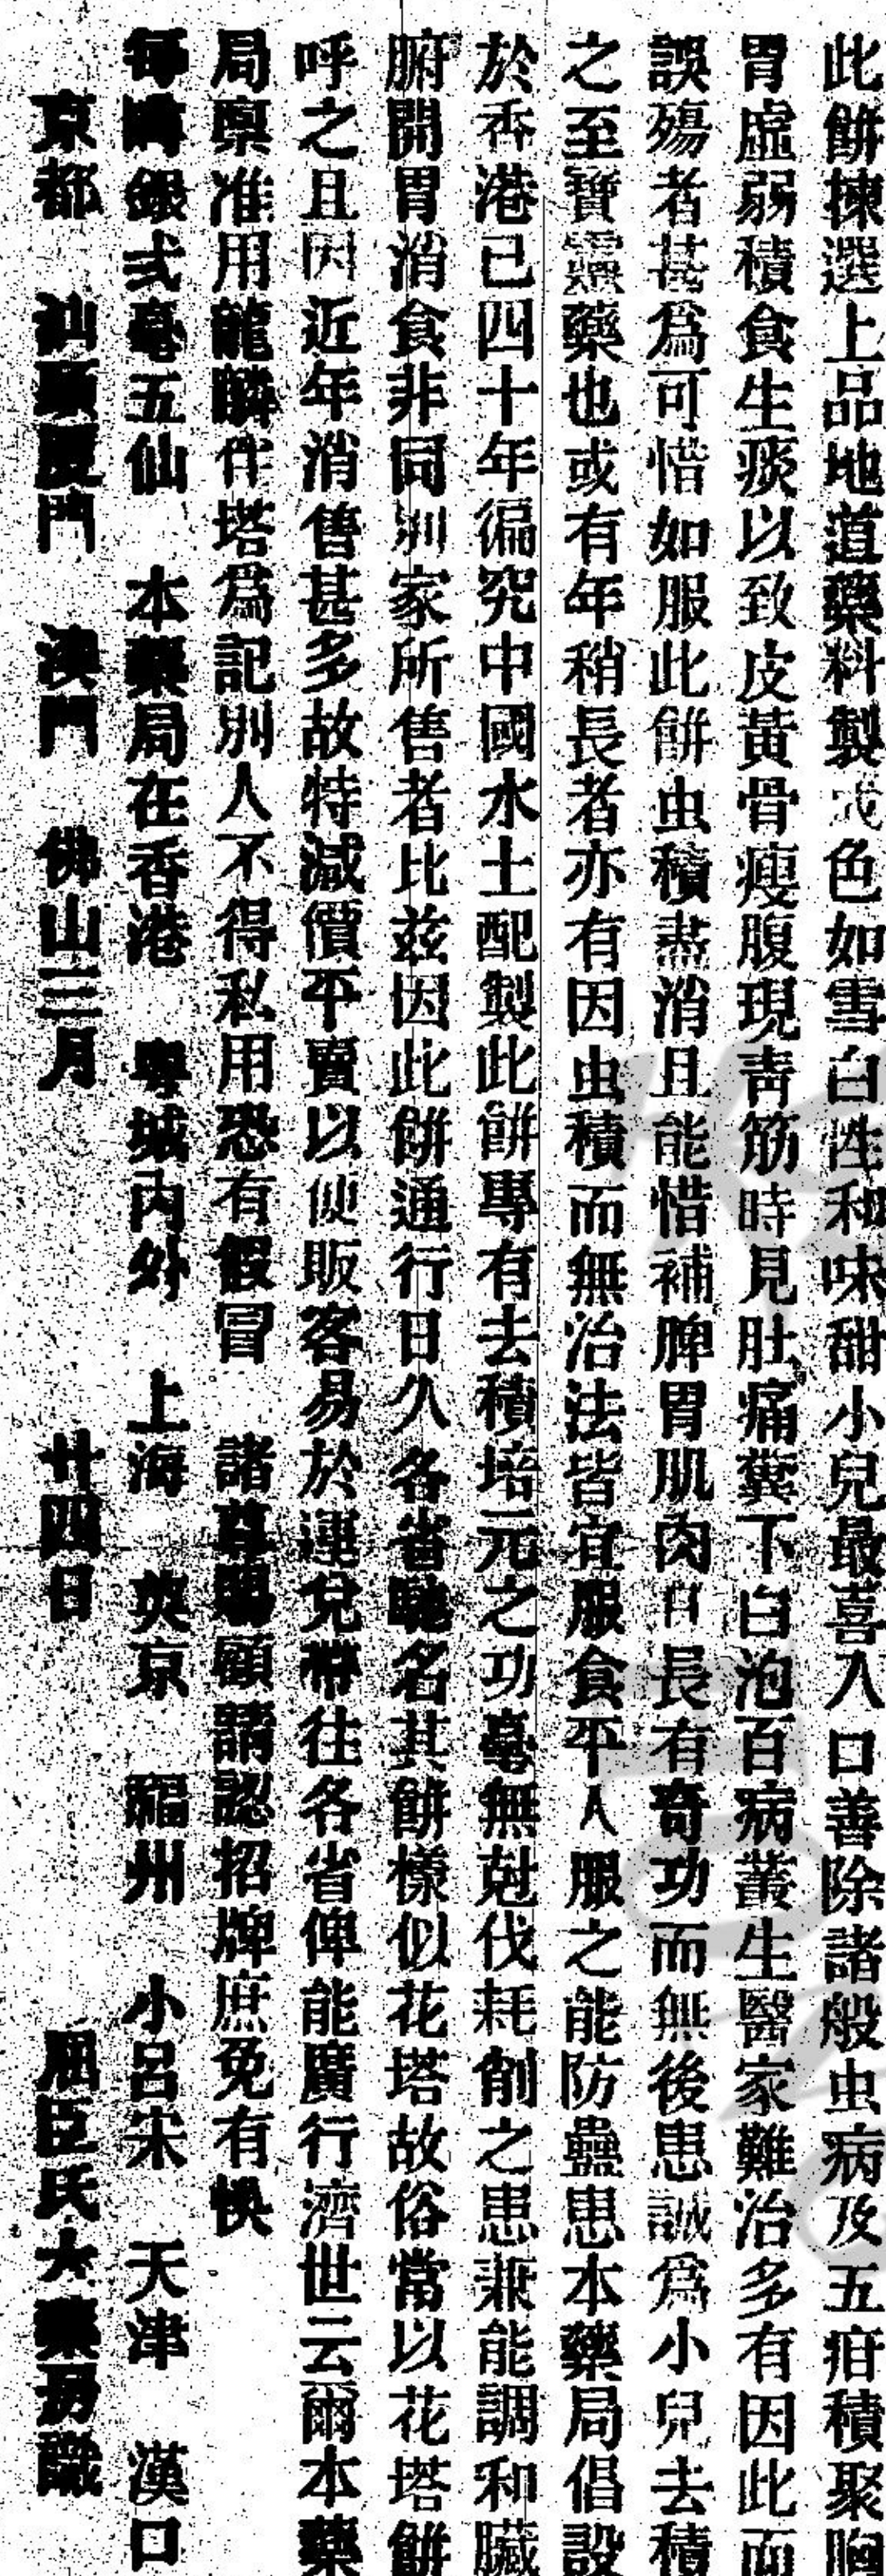 此餅揀選上品地道藥料製成色如雪白性和味甜小兒最喜入口善除諸般虫病及五疳積聚胸
胃虛弱積食生痰以致皮黃骨瘦腹現青筋時見肚痛糞下白泡百病叢生醫家難治多有因此而
誤殤者甚爲可惜如服此餅虫積盡消且能惜補脾胃肌肉日長有奇功而無後患誠爲小兒去積
之至寶靈藥也或有年稍長者亦有因虫積而無治法皆宜服食平人服之能防蠱患本藥局倡設
於香港已四十年徧究中國水土配製此餅專有去積培元之功毫無尅伐耗削之患兼能調和臟
腑開胃消食非同別家所售者比茲因此餅通行日久各省馳名其餅樣似花塔故俗常以花塔餅
呼之且因近年消售甚多故特減價平賣以便販客易於運兌帶往各省俾能廣行濟世云爾本藥
局稟准用龍麟伴塔爲記別人不得私用恐有假冒　諸尊賜顧請認招牌庶免有悞
每樽銀弍毫五仙　本藥局在香港　粵城內外　上海　英京　福州　小呂宋　天津　漢口
京都　汕頭廈門　澳門　佛山三月　廿四日　屈臣氏大藥房識